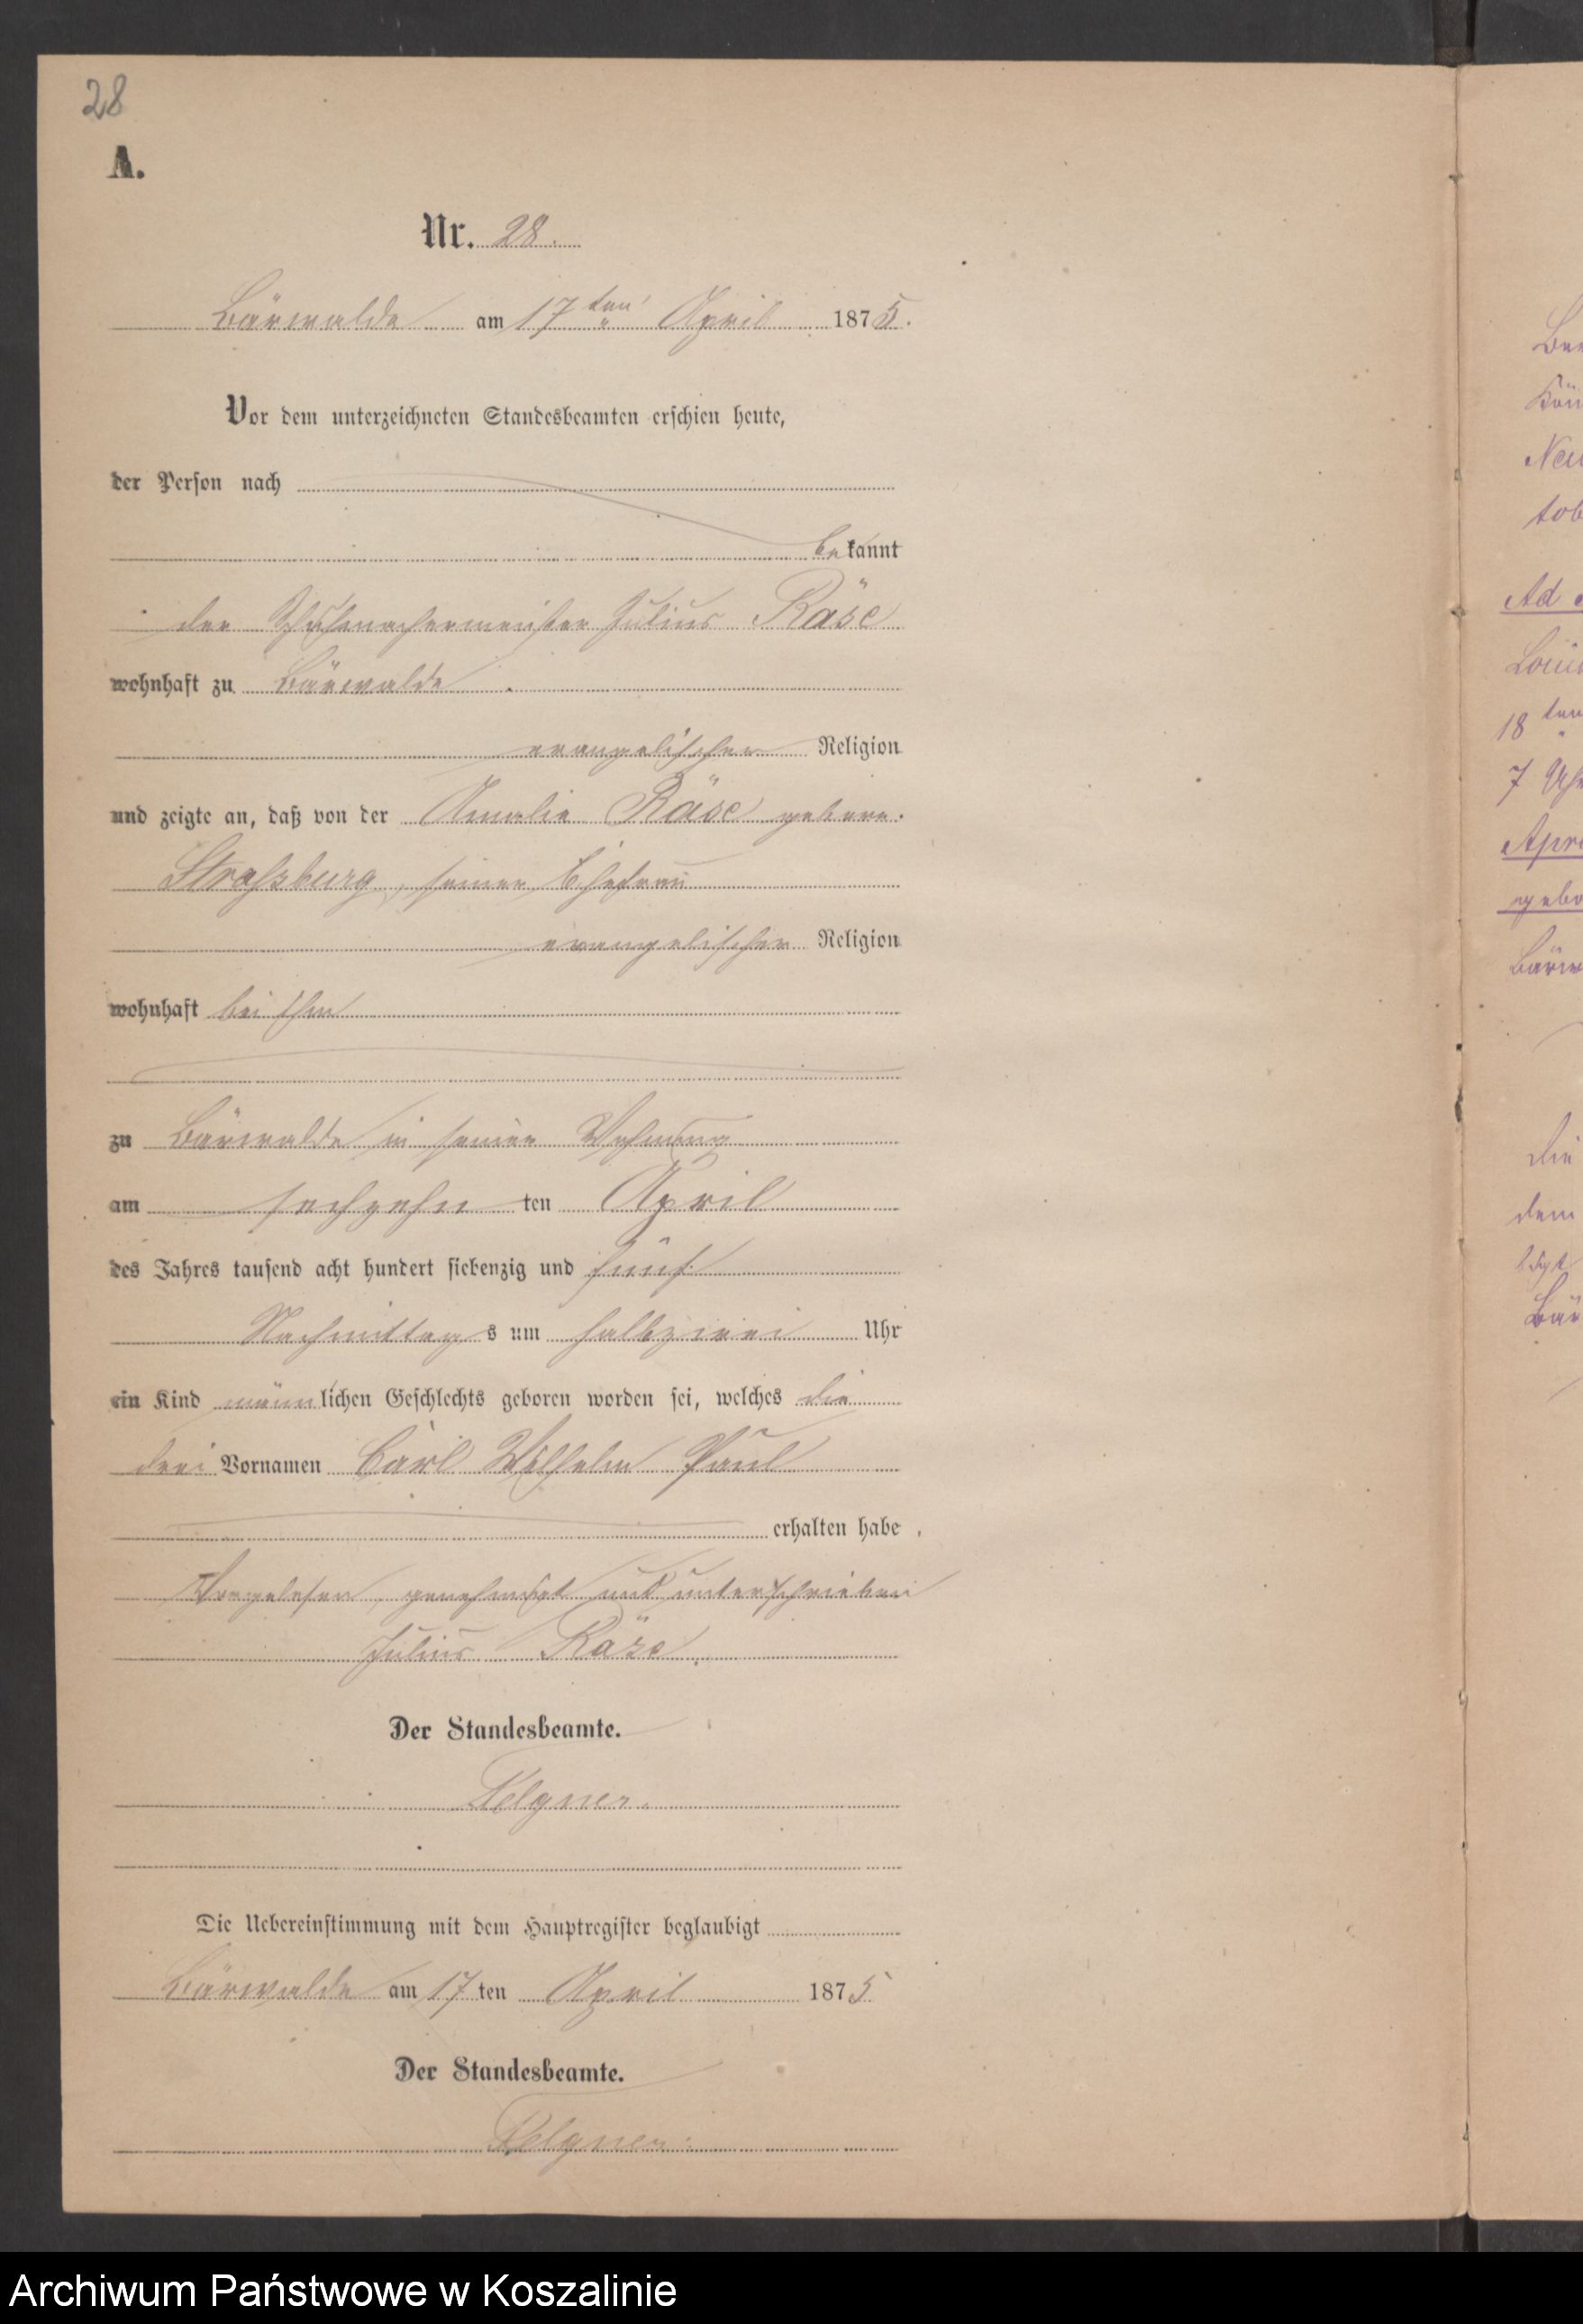 28
A.
Nr. 28.
Bärwalde am 17ten April 1875.
Vor dem unterzeichneten Standesbeamten erschien heute,
der Person nach
bekannt
der Schuhmachermeister Julius Räse
wohnhaft zu Bärwalde
evangelischer Religion
und zeigte an, daß von der Amalie Räse geborn.
Straßburg, seiner Ehefrau
evangelischer Religion
wohnhaft bei ihm
zu Bärwalde in seiner Wohnung
am sechzehn ten April
des Jahres tausend acht hundert siebenzig und fünf
Nachmittags um halbzwei Uhr
ein Kind männlichen Geschlechts geboren worden sei, welches die
drei Vornamen Carl Wilhelm Paul
erhalten habe.
Vorgelesen, genehmigt und unterschrieben
Julius Räse.
Der Standesbeamte.
Felgner.
Die Uebereinstimmung mit dem Hauptregister beglaubigt
Bärwalde am 17 ten April 1875
Der Standesbeamte.
Felgner.
Ad
18ten
7 Uhr
Die
dem
Archiwum Państwowe w Koszalinie